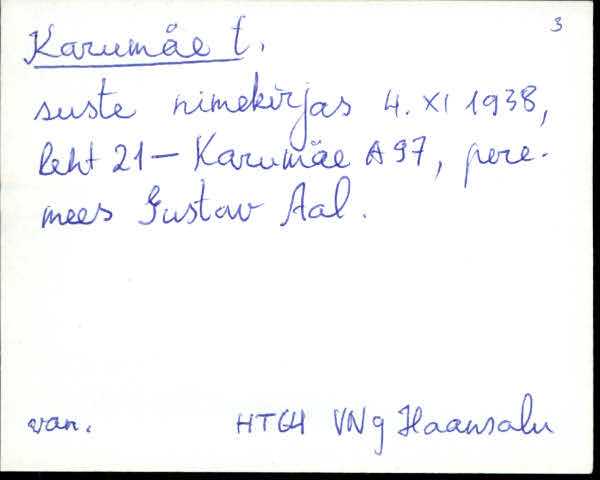 3
Karumäe t.
suste nimekirjas 4. XI 1938,
leht 21 — Karumäe A 97, pere-
mees Gustav Aal.
van. HTG4 VNg Haansalu